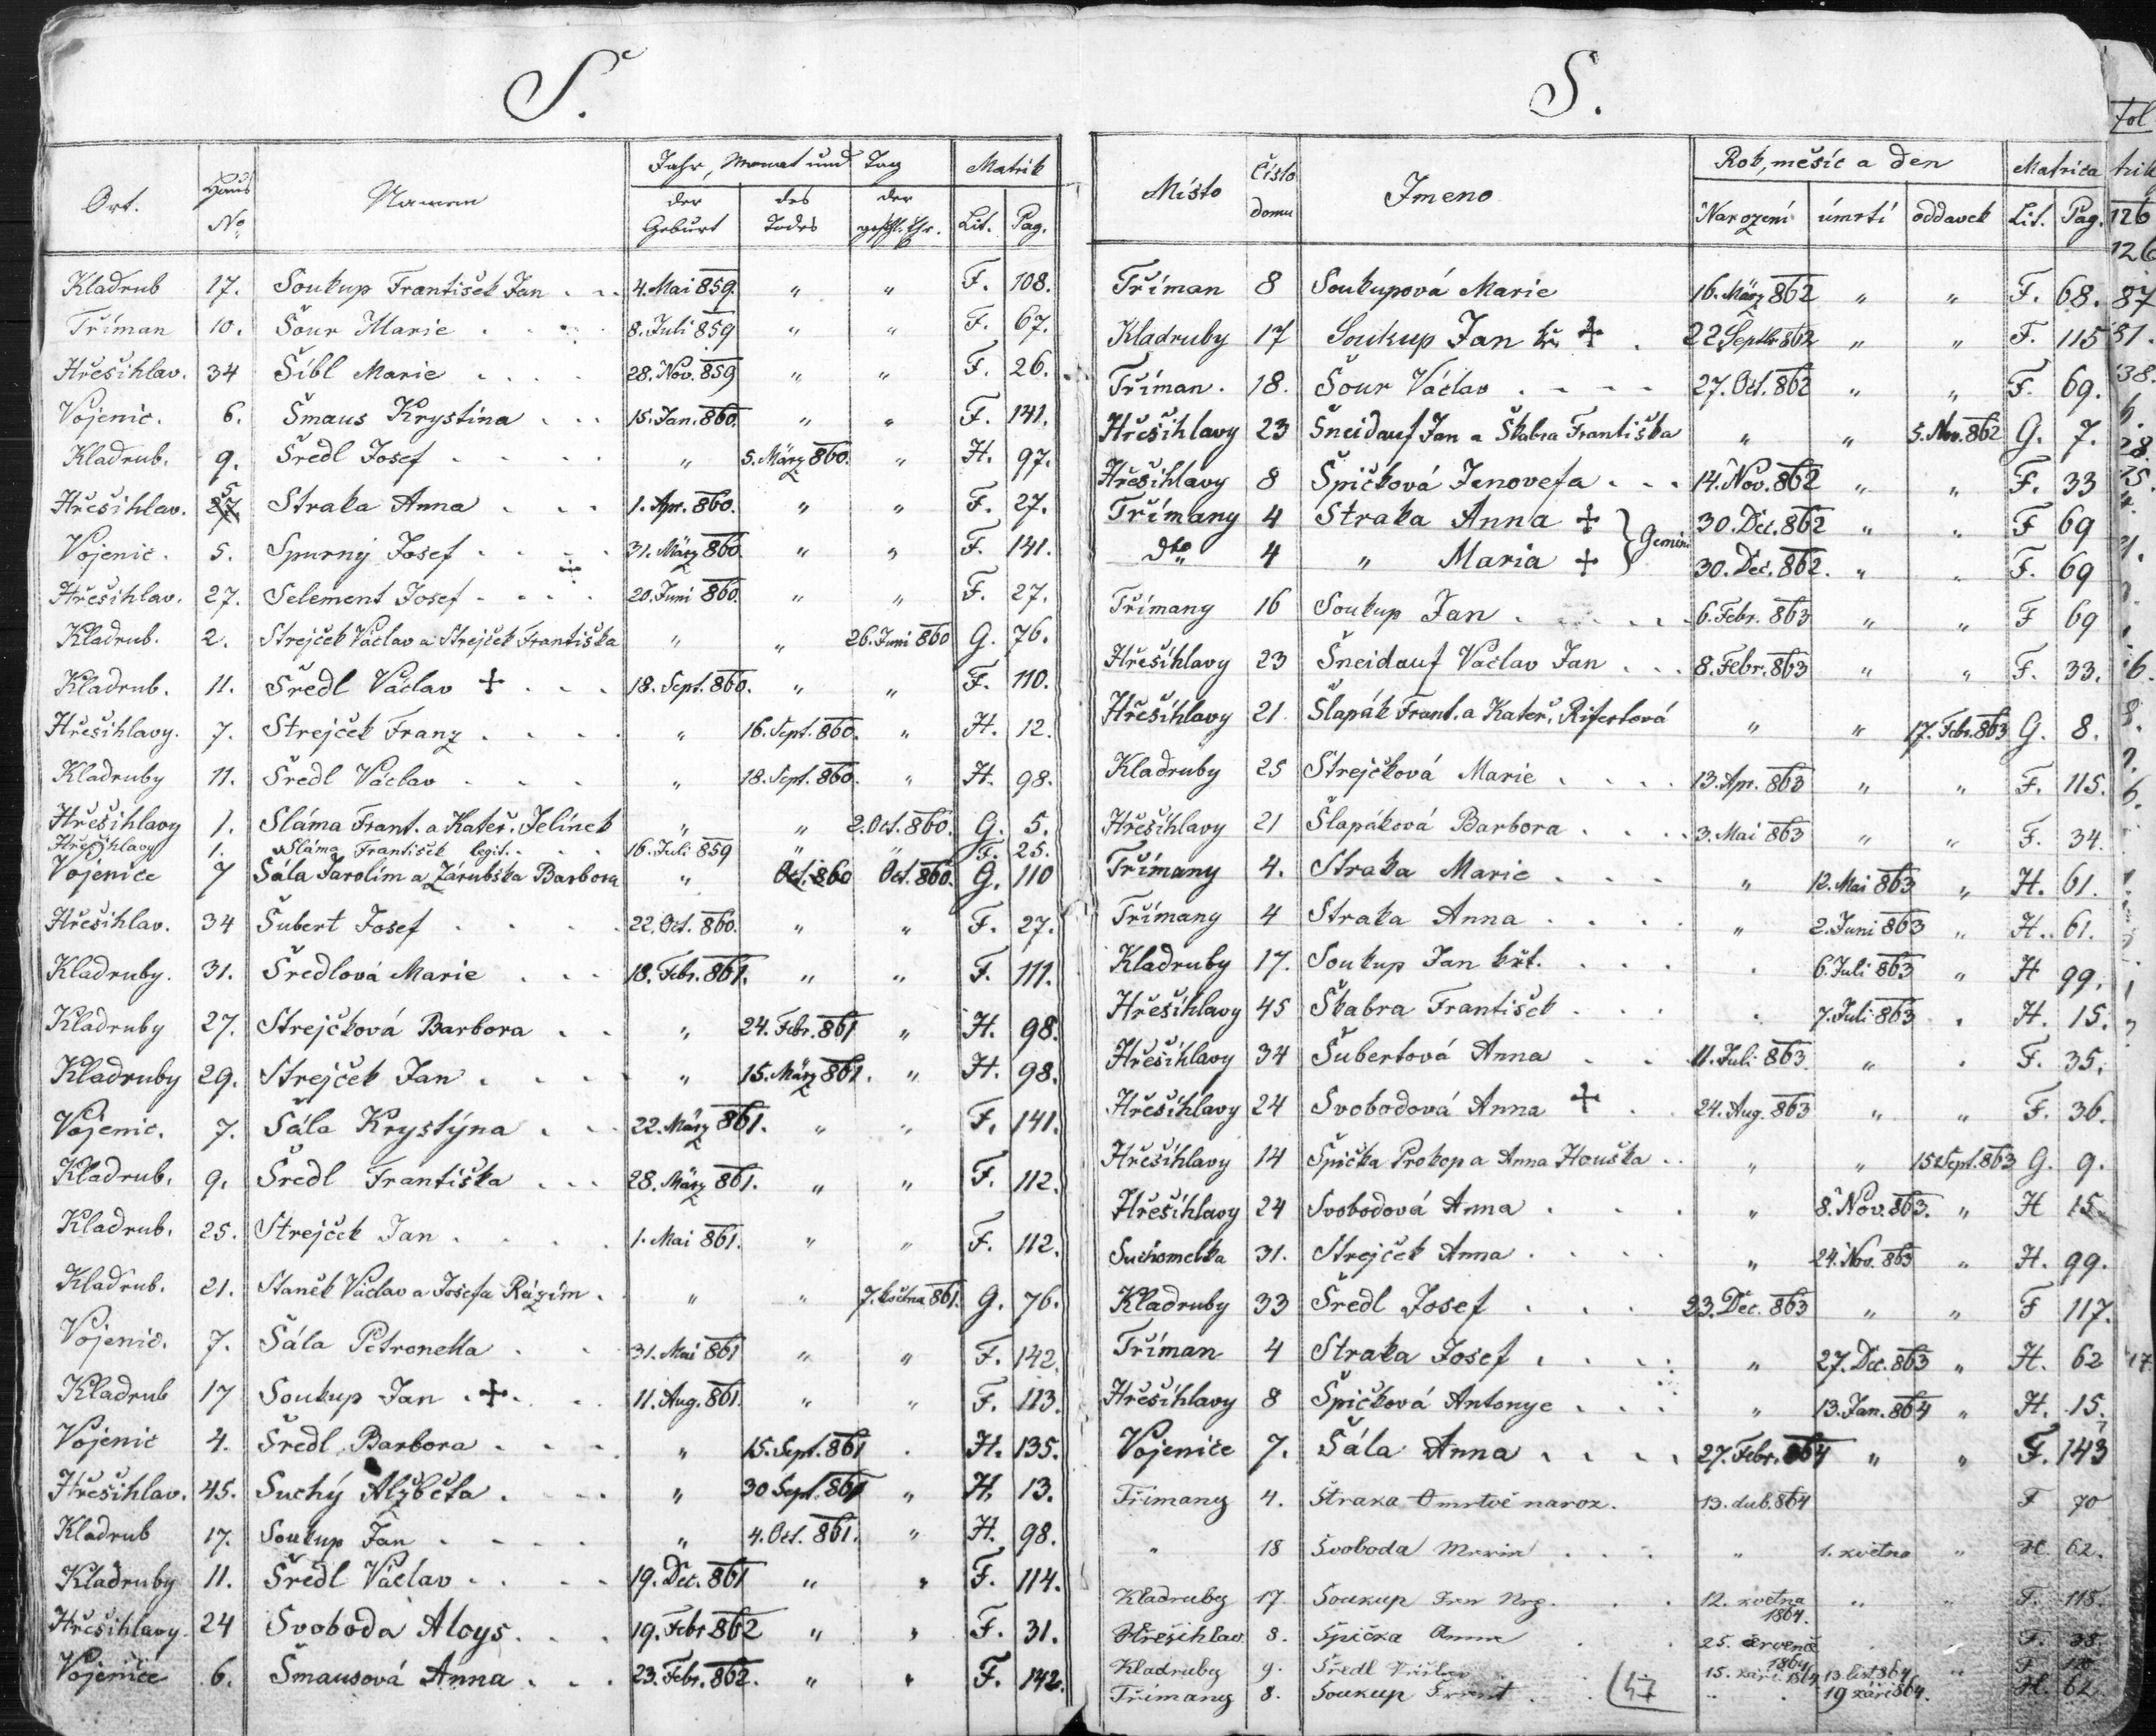 S.
Ort. Haus No. Namen Jahr, Monat und Tag Matrik
der Geburt des Todes der geschl. Ehe. Lit. Pag.
Kladrub 17. Soukup František Jan . . 4. Mai 859. " " F. 108.
Tříman 10. Šour Marie . . . 8. Juli 859 " " F. 67.
Hřešihlav. 34 Šibl Marie . . . . 28. Nov. 859 " " F. 26.
Vojenic. 6. Šmaus Krystina . . . 15. Jan. 860. " " F. 141.
Kladrub. 9. Šredl Josef . . . . " 5. März 860. " H. 97.
Hřešihlav. 5 Straka Anna . . . 1. Apr. 860. " " F. 27.
Vojenic. 5. Spurný Josef . . . . 31. März 860 " " F. 141.
Hřešihlav. 27. Selement Josef . . . . 20. Juni 860. " " F. 27.
Kladrub. 2. Strejček Václav a Strejček Františka " " 26. Juni 860 G. 76.
Kladrub. 11. Šredl Václav + . . . 18. Sept. 860. " " F. 110.
Hřešihlavy. 7. Strejček Franz . . . . " 16. Sept. 860. " H. 12.
Kladruby 11. Šredl Václav . . . " 18. Sept. 860. " H. 98.
Hřešihlavy 1. Sláma Frant. a Kateř. Jelínek " " 2. Oct. 860. G. 5.
Hřešihlavy 1. Sláma František legit. . . 16. Juli 859 " " F. 25.
Vojenice 7 Šála Jarolím a Zárubska Barbora " Oct. 860 Oct. 860. G. 110
Hřešihlav. 34 Šubert Josef . . . . 22. Oct. 860. " " F. 27.
Kladruby. 31. Šredlová Marie . . . 18. Febr. 861. " " F. 111.
Kladruby 27. Strejčková Barbora . . " 24. Febr. 861 " H. 98.
Kladruby 29. Strejček Jan . . . . " 15. März 861. " H. 98.
Vojenic. 7. Šála Krystýna . . . 22. März 861. " " F. 141.
Kladrub. 9. Šredl Františka . . . 28. März 861. " " F. 112.
Kladrub. 25. Strejček Jan . . . . 1. Mai 861. " " F. 112.
Kladrub. 21. Staněk Václav a Josefa Rázim . " " 7. května 861. G. 76.
Vojenic. 7. Šála Petronella . . 31. Mai 861 " " F. 142.
Kladrub 17 Soukup Jan . + . . 11. Aug. 861. " " F. 113.
Vojenic 4. Šredl Barbora . . . " 15. Sept. 861 . H. 135.
Hřešihlav. 45. Suchý Alžběta . . . " 30 Sept. 861 " H. 13.
Kladrub 17. Soukup Jan . . . . " 4. Oct. 861. " H. 98.
Kladruby 11. Šredl Václav . . . . 19. Dec. 861 " " F. 114.
Hřešihlavy. 24 Svoboda Aloys. . . 19. Febr 862 " " F. 31.
Vojenice 6. Šmausová Anna . . . 23. Febr. 862. " " F. 142.
S.
Místo Číslo domu Jmeno Rok, měsíc a den Matrica
Narození úmrtí oddavek Lit. Pag.
Tříman 8 Soukupová Marie 16. März 862 " " F. 68.
Kladruby 17 Soukup Jan + . 22 Septbr 862 " " F. 115
Tříman. 18. Šour Václav . . . . 27. Oct. 862 " " F. 69.
Hřešihlavy 23 Šneidauf Jan a Škabra Františka " " 5. Nov. 862 G. 7.
Hřešihlavy 8 Špičková Jenovefa . . . 14. Nov. 862 " " F. 33
Třímany 4 Straka Anna + 30. Dec. 862 " " F 69
dto 4 " Maria + Gemini 30. Dec. 862. " " F. 69
Třímany 16 Soukup Jan . . . . . 6. Febr. 863 " " F 69
Hřešíhlavy 23 Šneidauf Václav Jan . . . 8. Febr. 863 " " F. 33.
Hřešíhlavy 21. Šlapák Frant. a Kateř. Rifertová " " 17. Febr. 863 G. 8.
Kladruby 25 Strejčková Marie . . . . 13. Apr. 863 " " F. 115.
Hřešíhlavy 21 Šlapáková Barbora . . . . 3. Mai 863 " " F. 34.
Třímany 4. Straka Marie . . . " 12. Mai 863 " H. 61.
Třímany 4 Straka Anna . . . . " 2. Juni 863 " H. 61.
Kladruby 17. Soukup Jan křt. . . . . 6. Juli 863 " H 99.
Hřešíhlavy 45 Škabra František . . . . 7. Juli 863 . H. 15.
Hřešíhlavy 34 Šubertová Anna . . 11. Juli 863. " . F. 35.
Hřešíhlavy 24 Svobodová Anna + . . 24. Aug. 863 " " F. 36.
Hřešíhlavy 14 Špička Prokop a Anna Houška . . " " 15 Sept. 863 G. 9.
Hřešíhlavy 24 Svobodová Anna . . . " 8. Nov. 863. " H 15.
Suchomelka 31. Strejček Anna . . . . " 24. Nov. 863 " H. 99.
Kladruby 33 Šredl Josef . . . 23. Dec. 863 " " F 117.
Tříman 4 Straka Josef . . . . " 27. Dec. 863 " H. 62
Hřešíhlavy 8 Špičková Antonye . . . " 13. Jan. 864 " H. 15.
Vojenice 7. Šála Anna . . . . 27. Febr. 864 " " F. 143
Třímany 4. Straka Omrtvě naroz. 13. dub. 864 F 70
" 18 Svoboda Marie . . . " 1. května " H. 62.
Kladruby 17. Soukup Jan Nep. . . 12. května 1864. " " F. 118.
Hřešihlav. 8. Špička Anna . 25. července 1864 F. 38.
Kladruby 9. Šredl Václav . . 15. září 1864 13. list 864 " F.
Třímany 8. Soukup Frant . . " 19 září 864. H. 62.
47
Fol
126
126
87
31.
38.